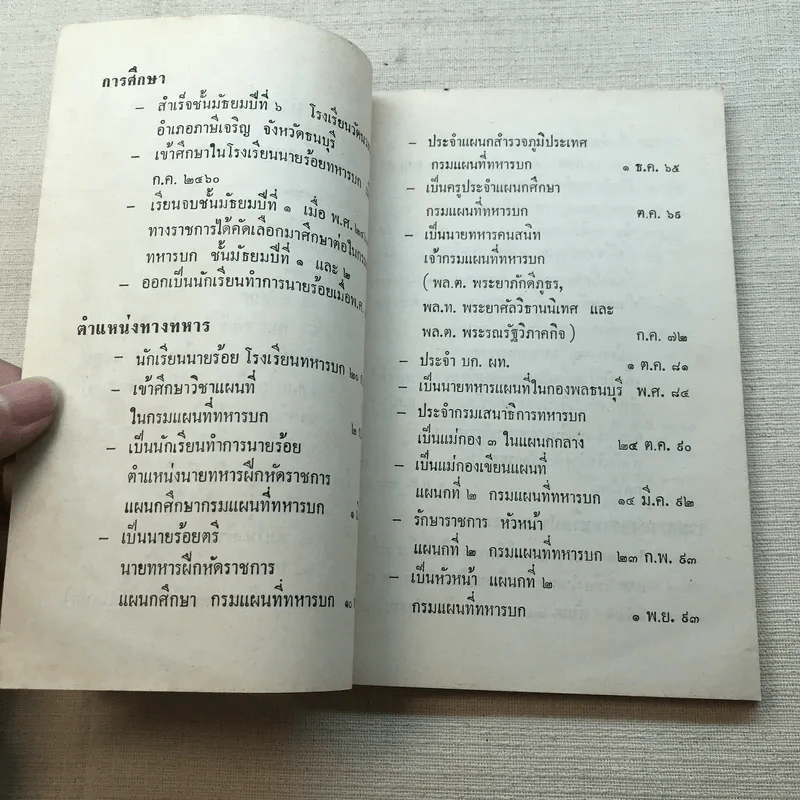 การศึกษา
– สำเร็จชั้นมัธยมปีที่ ๖ โรงเรียนวัดนวล
อำเภอภาษีเจริญ จังหวัดธนบุรี
– เข้าศึกษาในโรงเรียนนายร้อยทหารบก
ก.ค. ๒๔๖๐
– เรียนจบชั้นมัธยมปีที่ ๑ เมื่อ พ.ศ.
ทางราชการได้คัดเลือกมาศึกษาต่อในกรม
ทหารบก ชั้นมัธยมปีที่ ๑ และ ๒
– ออกเป็นนักเรียนทำการนายร้อยเมื่อพ.ศ.
ตำแหน่งทางทหาร
– นักเรียนนายร้อย โรงเรียนทหารบก ๒๐
– เข้าศึกษาวิชาแผนที่
ในกรมแผนที่ทหารบก ๒
– เป็นนักเรียนทำการนายร้อย
ตำแหน่งนายทหารฝึกหัดราชการ
แผนกศึกษากรมแผนที่ทหารบก ๑
– เป็นนายร้อยตรี
นายทหารฝึกหัดราชการ
แผนกศึกษา กรมแผนที่ทหารบก ๑๐
– ประจำแผนกสำรวจภูมิประเทศ
กรมแผนที่ทหารบก ๑ ธ.ค. ๖๕
– เป็นครูประจำแผนกศึกษา
กรมแผนที่ทหารบก ต.ค. ๖๙
– เป็นนายทหารคนสนิท
เจ้ากรมแผนที่ทหารบก
( พล.ต. พระยาภักดีภูธร,
พล.ท. พระยาศัลวิธานนิเทศ และ
พล.ต. พระรณรัฐวิภาคกิจ ) ก.ค. ๗๒
– ประจำ บก. ผท. ๑ ต.ค. ๘๑
– เป็นนายทหารแผนที่ในกองพลธนบุรี พ.ศ. ๘๔
– ประจำกรมเสนาธิการทหารบก
เป็นแม่กอง ๓ ในแผนกกลาง ๒๕ ต.ค. ๙๐
– เป็นแม่กองเขียนแผนที่
แผนกที่ ๒ กรมแผนที่ทหารบก ๑๔ มี.ค. ๙๒
– รักษาราชการ หัวหน้า
แผนกที่ ๒ กรมแผนที่ทหารบก ๒๓ ก.พ. ๙๓
– เป็นหัวหน้า แผนกที่ ๒
กรมแผนที่ทหารบก ๑ พ.ย. ๙๓